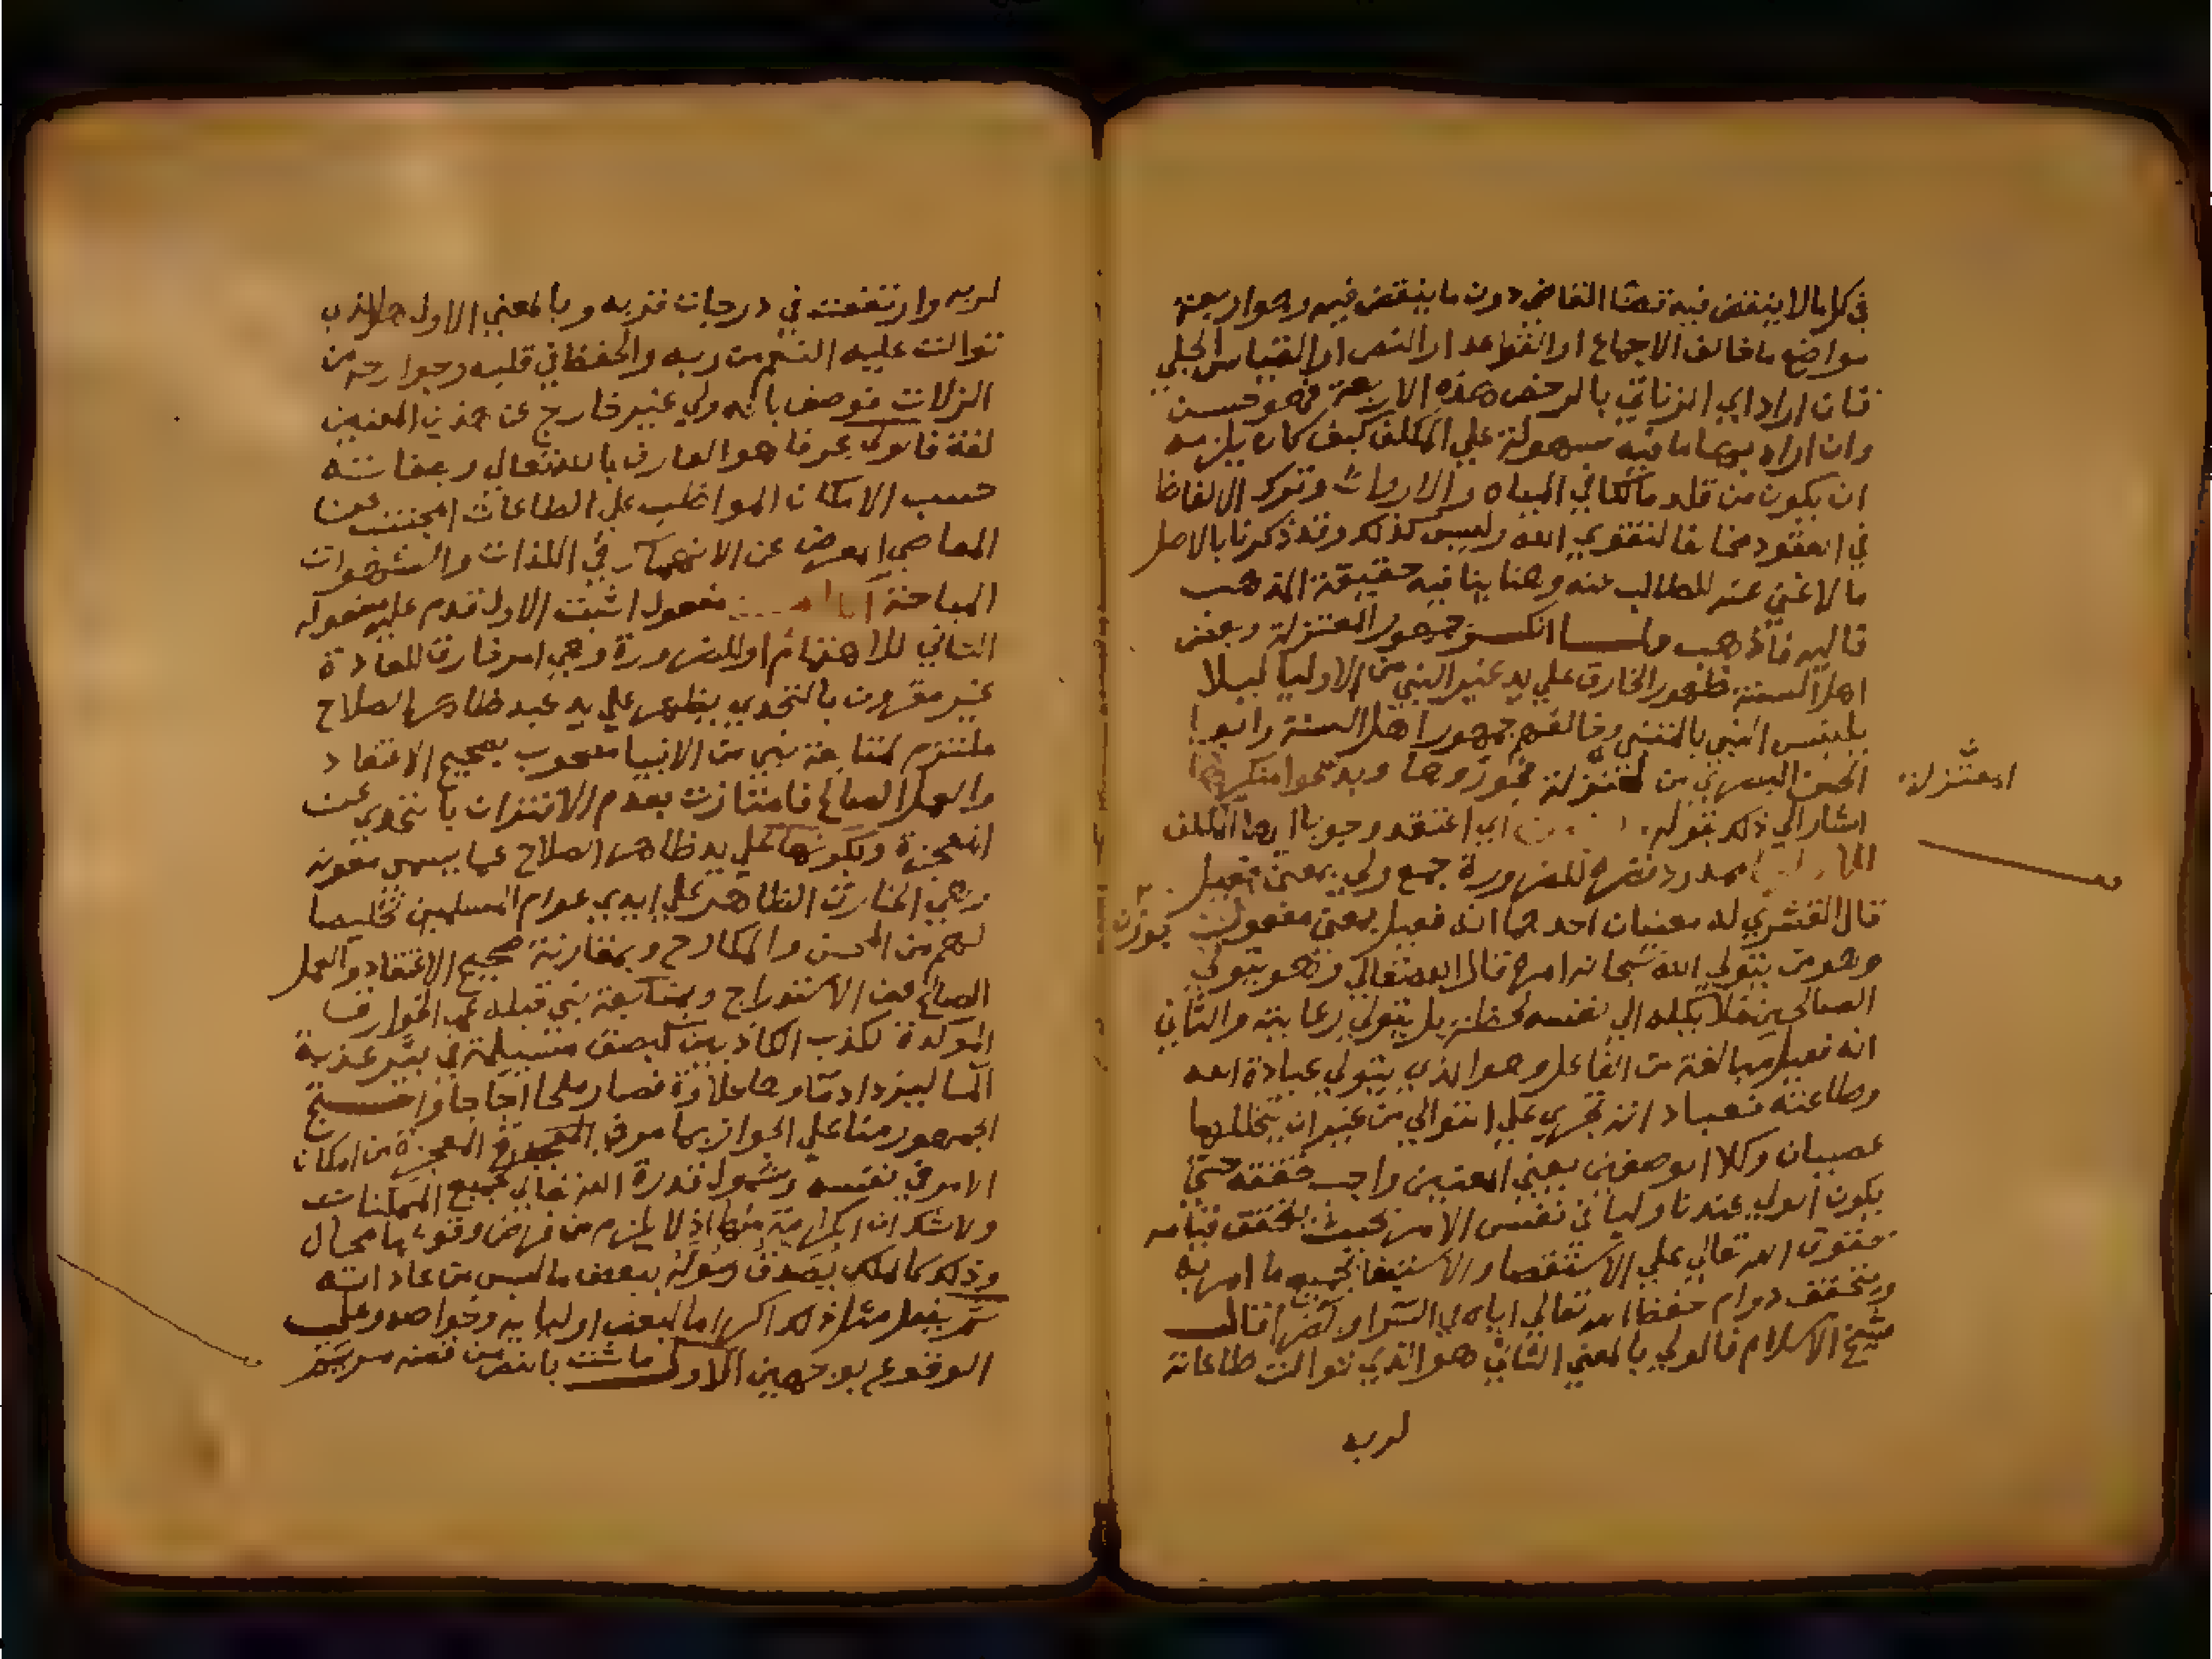 في كل ما لا ينقض فيه قضا القاضي دون ما ينقض فيه وهو اربعة
مواضع ما خالف الاجماع او القواعد او النص او القياس الجلي
فان اراد اي الزناتي بالرخص هذه الاربعة فهو حسن
وان اراد بها ما فيه سهولة علي المكلف كيف كان يلزمه
ان يكون من قلد مالكا في المياه والارواث وترك الالفاظ
في العقود مخالفا لتقوي الله وليس كذلك وقد ذكرنا بالاصل
ما لا غني عنه للطالب منه وهنا ينافيه حقيقة المذهب
ولما انكر جمهور المعتزلة وبعض
اهل السنة ظهور الخارق علي يد غير النبي من الاوليا ليلا
يلتبس النبي بالمتنبي وخالفهم جمهور اهل السنة وابو
الحسن البصري من المعتزلة فجوزوها وبدعوا منكريها
المعتزلة
اشار الي ذلك بقوله اي اعتقد وجوبا ايها المكلف
قصره للضرورة جمع ولي بمعني فعيل
قال القشيري له معنيان احدهما انه فعيل بمعني مفعول
وهو من يتولي الله سبحانه امره قال الله تعالي وهو يتولي
الصالحين فلا يكله الي نفسه لحظة بل يتولي رعايته والثاني
انه فعيل مبالغة من الفاعل وهو الذي يتولي عبادة الله
وطاعته فعباداته تجري علي التوالي من غير ان يتخللها
عصيان وكلا الوصفين يعني المعنيين واجب تحققه حتي
يكون الولي عندنا وليا في نفس الامر بحيث يتحقق قيامه
بحقوق الله تعالي علي الاستقصا والاستيفا بجميع ما امر به
ويتحقق دوام حفظ الله تعالي اياه في السرا والضرا قال
شيخ الاسلام فالولي بالمعني الثاني هو الذي توالت طاعاته
لربه
لربه وارتفعت في درجات قربه وبالمعني الاول هو الذي
توالت عليه النعم من ربه والحفظ في قلبه وجوارحه من
الزلات فوصف بانه ولي غير خارج عن هذين المعنيين
لغة فالولي عرفا هو العارف بالله تعالي وصفاته
حسب الامكان المواظب علي الطاعات المجتنب عن
المعاصي المعرض عن الانهماك في اللذات والشهوات
المباحة مفعول اثبت الاول قدم عليه مفعوله
الثاني للاهتمام او للضرورة وهي امر خارق للعادة
غير مقرون بالتحدي يظهر علي يد عبد ظاهر الصلاح
ملتزم لمتابعة نبي من الانبيا مصحوب بصحيح الاعتقاد
والعمل الصالح فامتازت بعدم الاقتران بالتحدي عن
المعجزة وبكونها علي يد ظاهر الصلاح عما يسمي معونة
وهي الخارق الظاهر علي ايدي عوام المسلمين تخليصا
لهم من المحن والمكاره وبمقارنة صحيح الاعتقاد والعمل
الصالح عن الاستدراج وبمتابعة نبي قبله عن الخوارق
المؤكدة لكذب الكاذبين كبصق مسيلمة في بير عذبة
الما ليزداد ماوها حلاوة فصار ملحا اجاجا واحتج
الجمهور منا علي الجواز بما مر في المعجزة من امكان
الامر في نفسه وشمول قدرة الله تعالي لجميع الممكنات
ولا شك ان الكرامة منها اذ لا يلزم من فرض وقوعها محال
وذلك كالملك يصدق رسوله ببعض ما ليس من عاداته
ثم يفعل مثل ذلك اكراما لبعض اوليايه وخواصه وعلي
الوقوع بوجهين الاول ما ثبت بالنص من قصة مريم